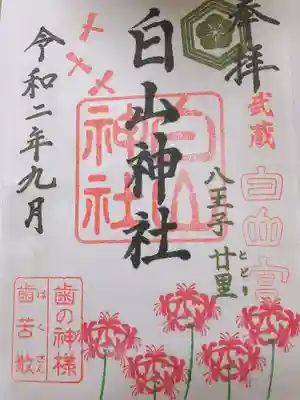 奉拝
武蔵
白山宮
八王子 廿里
とどり
白山神社
白山
神社
令和二年九月
歯の神様
歯苦散
はくさん